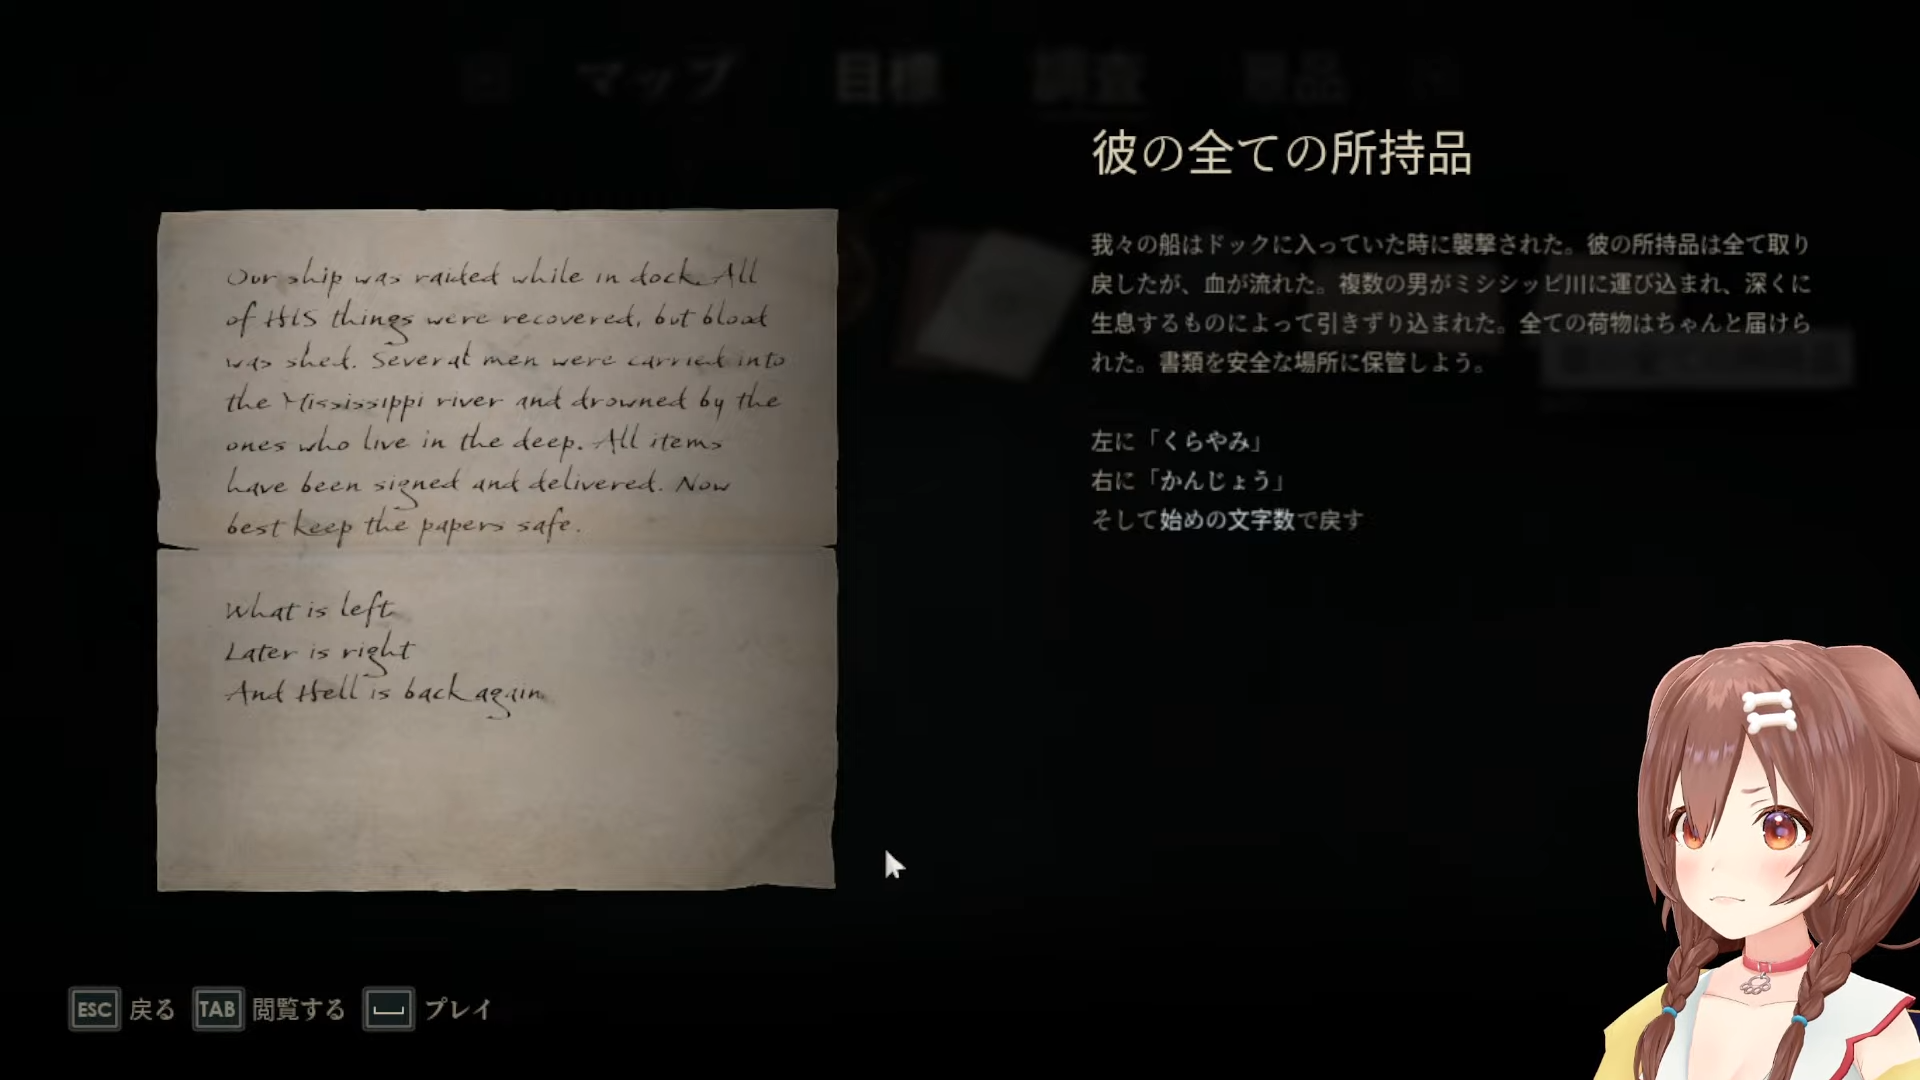 マップ
目標
調査
彼の全ての所持品
Our ship was raided while in dock. All
of HIS things were recovered, but blood
was shed. Several men were carried into
the Mississippi river and drowned by the
ones who live in the deep. All items
have been signed and delivered. Now
best keep the papers safe.
What is left
Later is right
And Hell is back again
我々の船はドックに入っていた時に襲撃された。彼の所持品は全て取り
戻したが、血が流れた。複数の男がミシシッピ川に運び込まれ、深くに
生息するものによって引きずり込まれた。全ての荷物はちゃんと届けら
れた。書類を安全な場所に保管しよう。
左に「くらやみ」
右に「かんじょう」
そして始めの文字数で戻す
ESC 戻る TAB 閲覧する プレイ